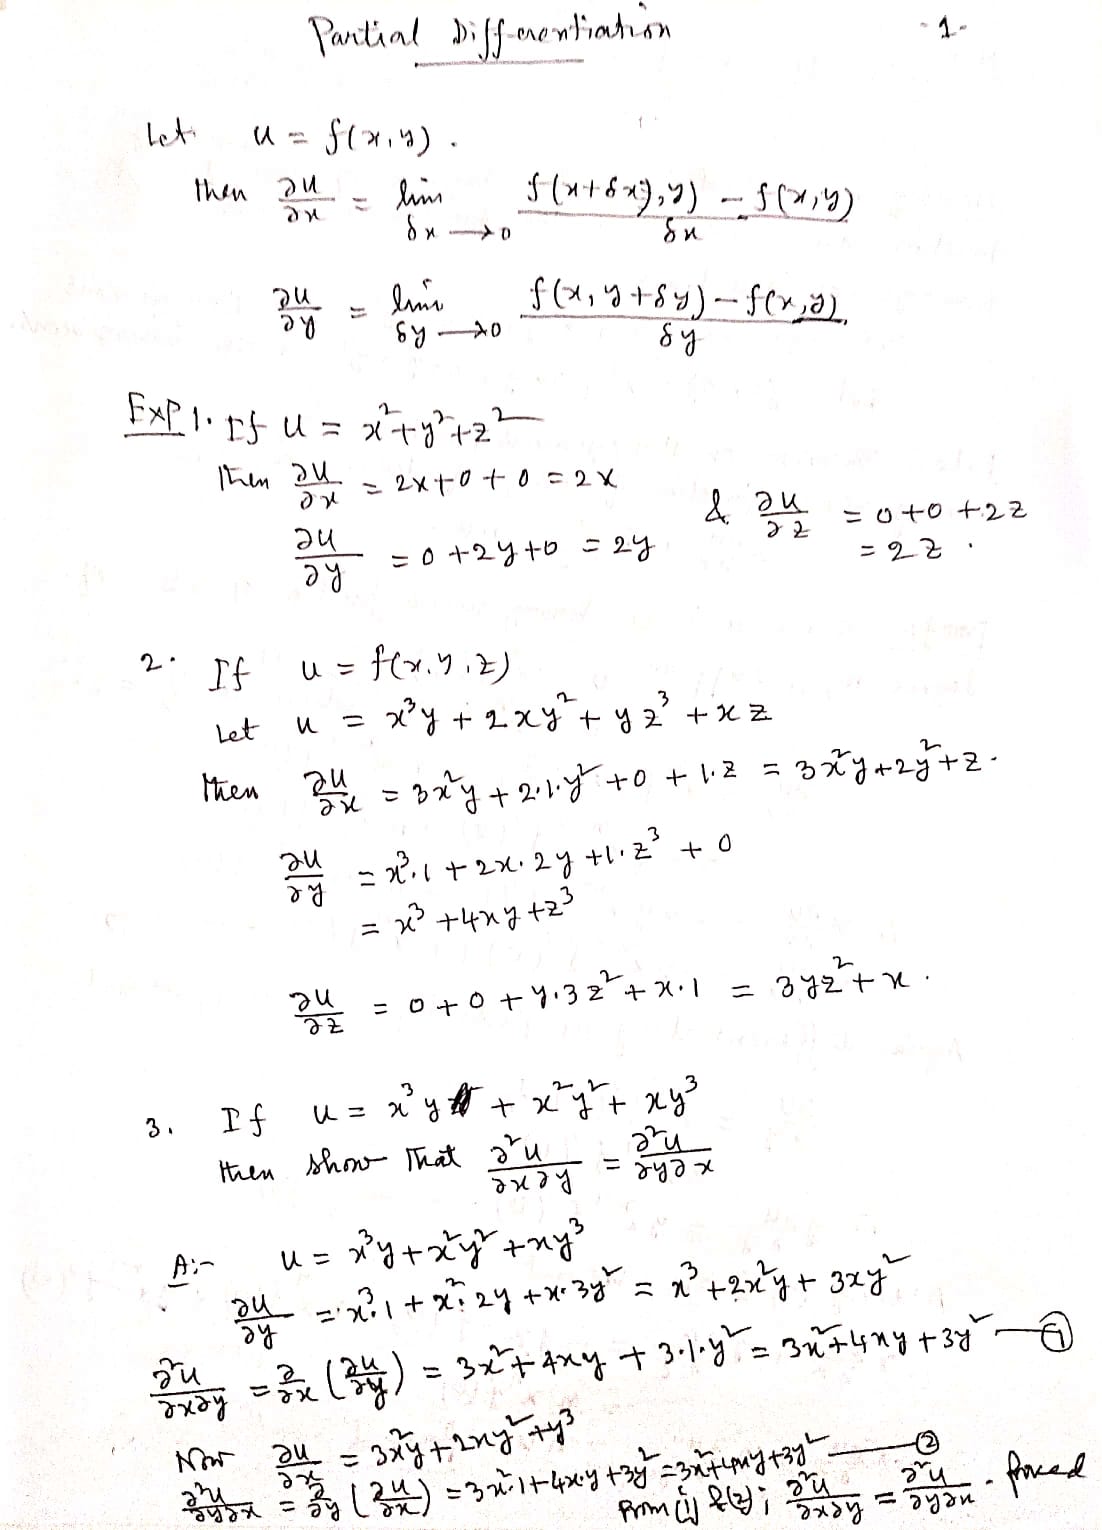 Partial Differentiation - 1 -
Let u = f(x,y) .
then ∂u/∂x = lim δx→0 (f(x+δx),y) − f(x,y))/δx
∂u/∂y = lim δy→0 (f(x, y+δy) − f(x,y))/δy
Exp 1. If u = x²+y²+z²
Then ∂u/∂x = 2x+0+0 = 2x
∂u/∂y = 0+2y+0 = 2y
& ∂u/∂z = 0+0+2z
= 2z .
2. If u = f(x,y,z)
Let u = x³y + 2xy² + yz³ + xz
then ∂u/∂x = 3x²y + 2.1.y² + 0 + 1.z = 3x²y+2y²+z.
∂u/∂y = x³.1 + 2x.2y + 1.z³ + 0
= x³ + 4xy + z³
∂u/∂z = 0 + 0 + y.3z² + x.1 = 3yz² + x .
3. If u = x³y + x²y² + xy³
then show That ∂²u/∂x∂y = ∂²u/∂y∂x
A:- u = x³y + x²y² + xy³
∂u/∂y = x³.1 + x².2y + x.3y² = x³ + 2x²y + 3xy²
∂²u/∂x∂y = ∂/∂x (∂u/∂y) = 3x² + 4xy + 3.1.y² = 3x²+4xy+3y² — ①
Now ∂u/∂x = 3x²y + 2xy² + y³
∂²u/∂y∂x = ∂/∂y (∂u/∂x) = 3x².1+4x.y+3y² = 3x²+4xy+3y² — ②
From (1) & (2); ∂²u/∂x∂y = ∂²u/∂y∂x . Proved